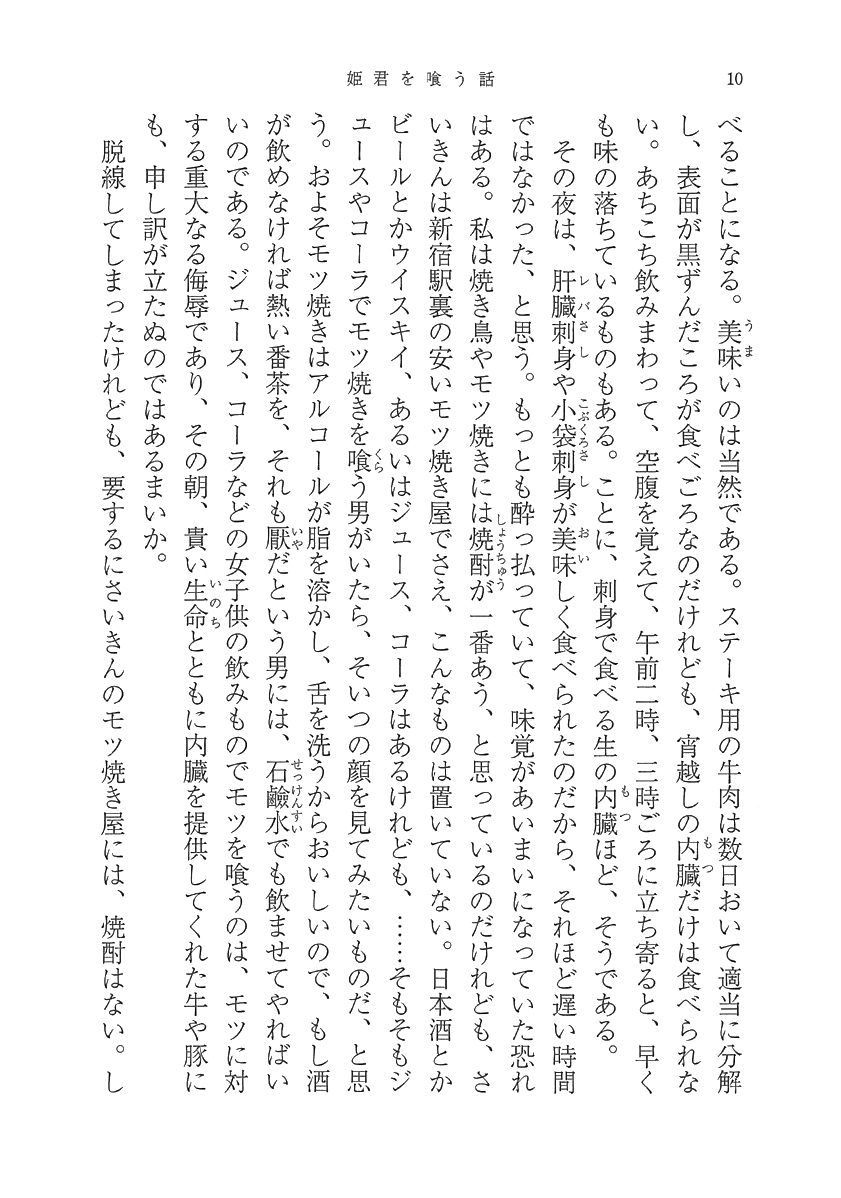 姫君を喰う話
10
べることになる。美味いのは当然である。ステーキ用の牛肉は数日おいて適当に分解
し、表面が黒ずんだころが食べごろなのだけれども、宵越しの内臓だけは食べられな
い。あちこち飲みまわって、空腹を覚えて、午前二時、三時ごろに立ち寄ると、早く
も味の落ちているものもある。ことに、刺身で食べる生の内臓ほど、そうである。
その夜は、肝臓刺身や小袋刺身が美味しく食べられたのだから、それほど遅い時間
ではなかった、と思う。もっとも酔っ払っていて、味覚があいまいになっていた恐れ
はある。私は焼き鳥やモツ焼きには焼酎が一番あう、と思っているのだけれども、さ
いきんは新宿駅裏の安いモツ焼き屋でさえ、こんなものは置いていない。日本酒とか
ビールとかウイスキイ、あるいはジュース、コーラはあるけれども、……そもそもジ
ュースやコーラでモツ焼きを喰う男がいたら、そいつの顔を見てみたいものだ、と思
う。およそモツ焼きはアルコールが脂を溶かし、舌を洗うからおいしいので、もし酒
が飲めなければ熱い番茶を、それも厭だという男には、石鹼水でも飲ませてやればい
いのである。ジュース、コーラなどの女子供の飲みものでモツを喰うのは、モツに対
する重大なる侮辱であり、その朝、貴い生命とともに内臓を提供してくれた牛や豚に
も、申し訳が立たぬのではあるまいか。
脱線してしまったけれども、要するにさいきんのモツ焼き屋には、焼酎はない。し